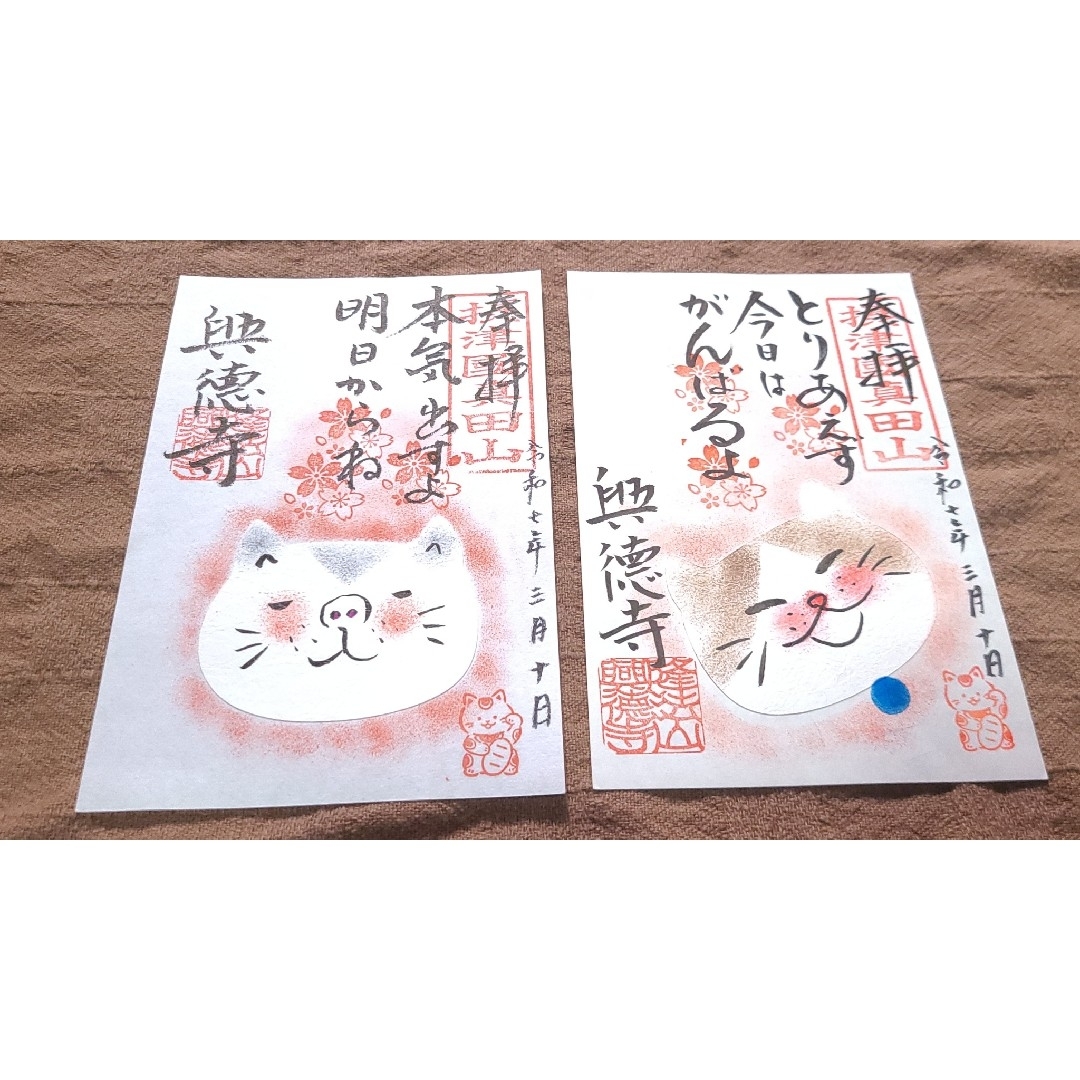 奉拝
摂津國真田山
本気出すよ
明日からね
興徳寺
令和七年三月十日
奉拝
摂津國真田山
とりあえず
今日は
がんばるよ
興徳寺
令和七年三月十日